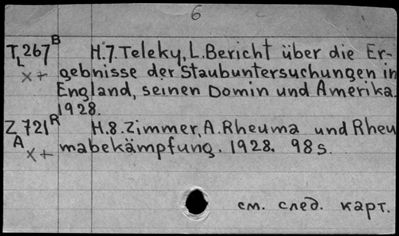 6
T 267 B H.7. Teleky, L. Bericht über die Er-
L x+ gebnisse der Staubuntersuchungen in
England, seinen Domin und Amerika.
1928.
Z 721 R H.8. Zimmer, A. Rheuma und Rheu
A x+ mabekämpfung. 1928. 98 s.
см. след. карт.